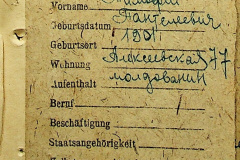 Vorname Тимофей
Пантелеевич
Geburtsdatum 1901
Geburtsort
Wohnung Алексеевская 77
Aufenthalt молдованин
Beruf
Beschäftigung
Staatsangehörigkeit